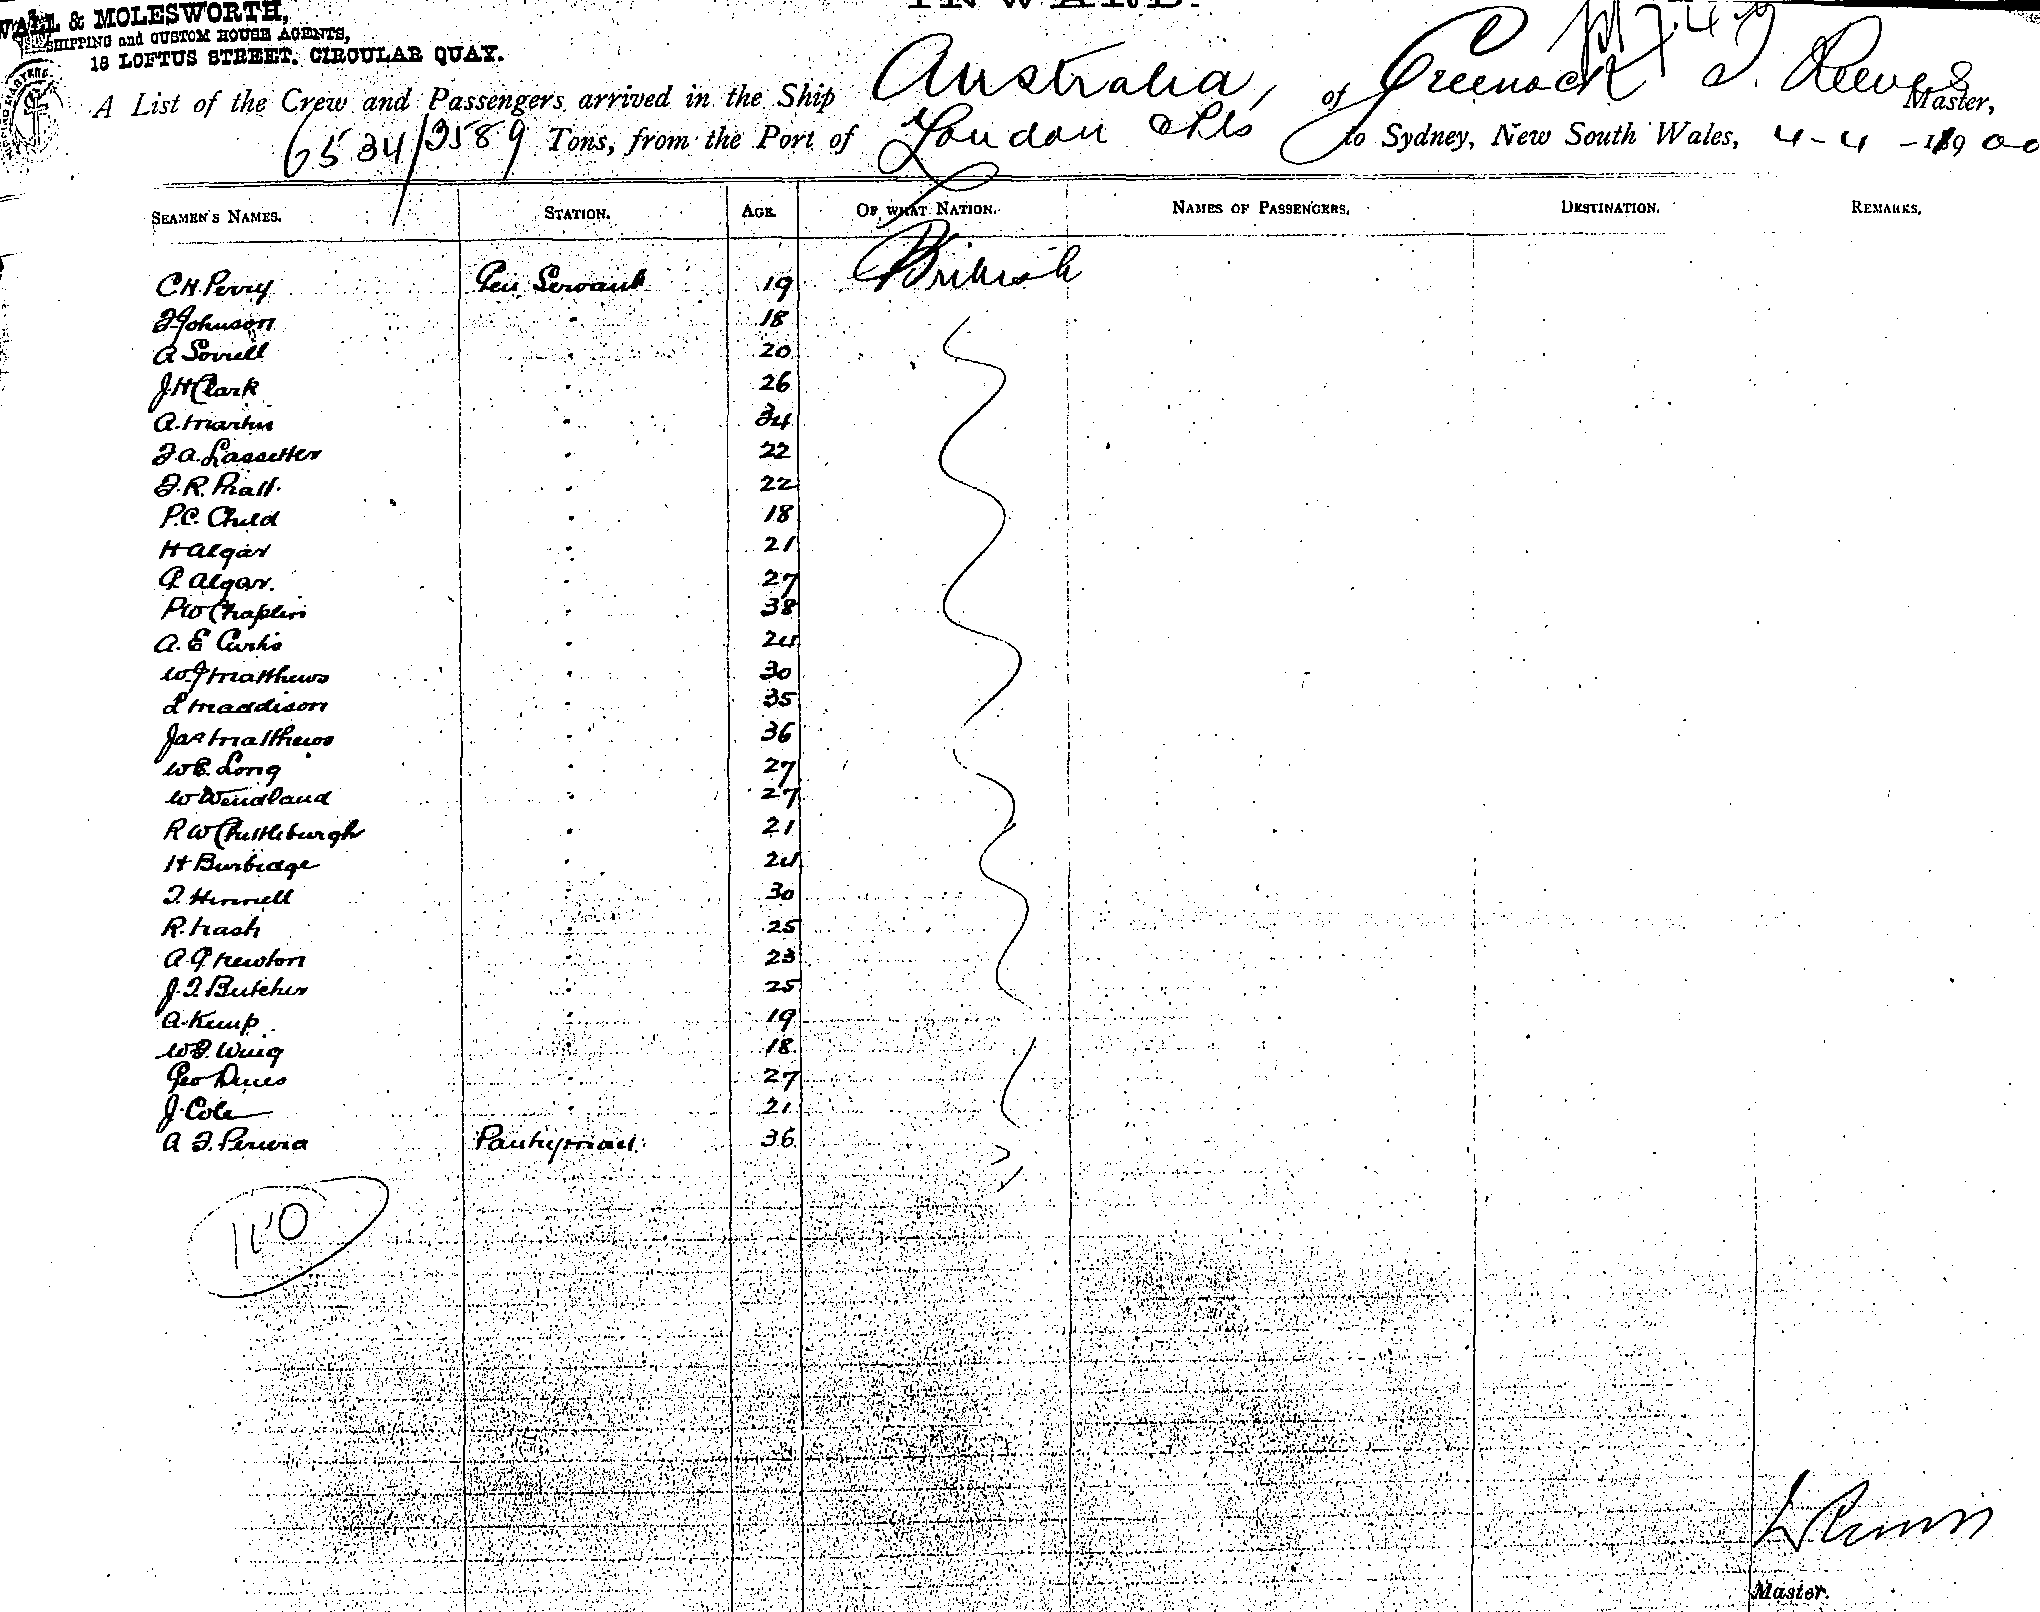 WALL & MOLESWORTH,
SHIPPING and CUSTOM HOUSE AGENTS,
18 LOFTUS STREET, CIRCULAR QUAY.
INWARD.
A List of the Crew and Passengers arrived in the Ship Australia, of Greenock T. Reeves Master,
6534/3589 Tons, from the Port of London & Pts to Sydney, New South Wales, 4-4-1900
SEAMEN'S NAMES. STATION. AGE. OF WHAT NATION. NAMES OF PASSENGERS. DESTINATION. REMARKS.
C H. Perry Gen Servant 19 British
F Johnson " 18
A Sorrell " 20
J. H Clark " 26
A. Martin " 34
F A. Lassetter " 22
F. R. Pratt " 22
P. C. Child " 18
H Algar " 21
G Algar. " 27
P W Chaplin " 38
A. E Curtis " 24
W J Matthews " 30
L Maddison " 35
Jas Matthews " 36
W E. Long " 27
W Wendland " 27
R W Chittleburgh " 21
H Burbidge " 24
T. Hinnell " 30
R. Nash " 25
A. G Newton " 23
J. T. Butcher " 25
A. Kemp " 19
W F. Wing " 18
Geo Dines " 27
J. Cole " 21
A F. Pereira Pantryman 36
110
Master.